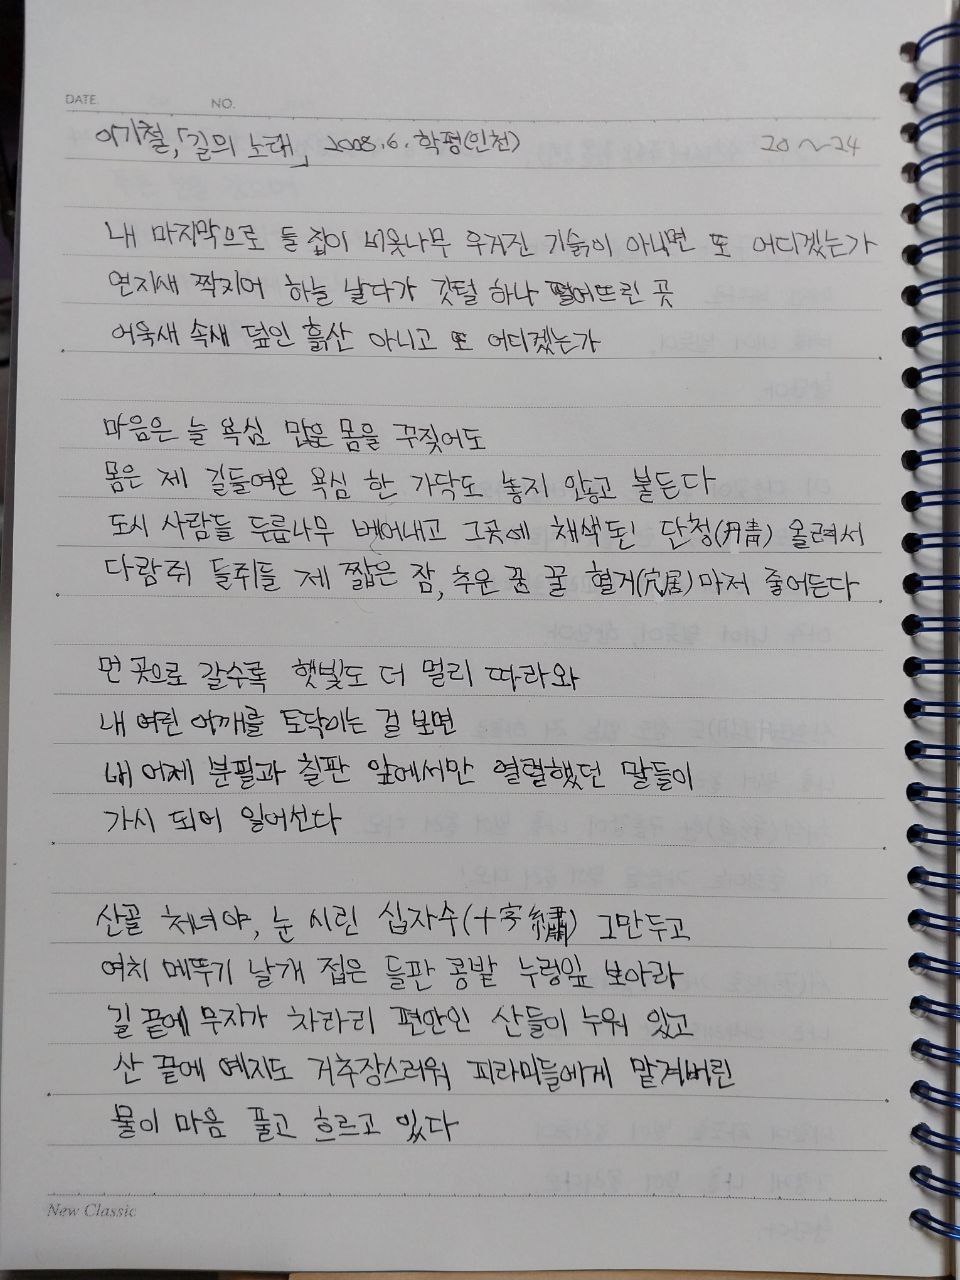 DATE. NO.
이기철, 「길의 노래」 2008.6. 학평(인천) 20~24
내 마지막으로 들 집이 비옷나무 우거진 기슭이 아니면 또 어디겠는가
연지새 짝지어 하늘 날다가 깃털 하나 떨어뜨린 곳
어욱새 속새 덮인 흙산 아니고 또 어디겠는가
마음은 늘 욕심 많은 몸을 꾸짖어도
몸은 제 길들여온 욕심 한 가닥도 놓지 않고 붙든다
도시 사람들 두릅나무 베어내고 그곳에 채색된 단청(丹靑) 올려서
다람쥐 들쥐들 제 짧은 잠, 추운 꿈 꿀 혈거(穴居)마저 줄어든다
먼 곳으로 갈수록 햇빛도 더 멀리 따라와
내 여린 어깨를 토닥이는 걸 보면
내 어제 분필과 칠판 앞에서만 열렬했던 말들이
가시 되어 일어선다
산골 처녀야, 눈 시린 십자수(十字繡) 그만두고
여치 메뚜기 날개 접은 들판 콩밭 누렁잎 보아라
길 끝에 무지가 차라리 편안인 산들이 누워 있고
산 끝에 예지도 거추장스러워 피라미들에게 맡겨버린
물이 마음 풀고 흐르고 있다
New Classic